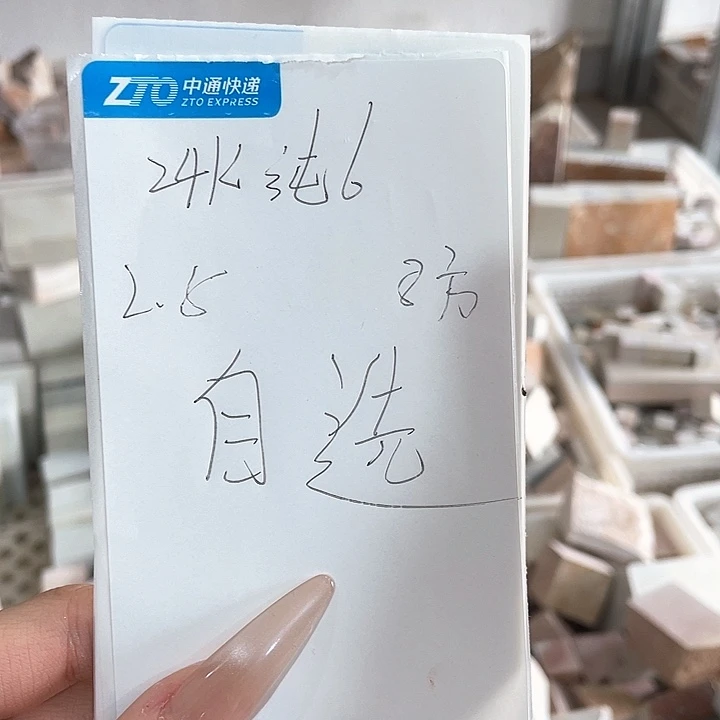 ZTO 中通快递
ZTO EXPRESS
24K 纯6
2.5 8方
自选